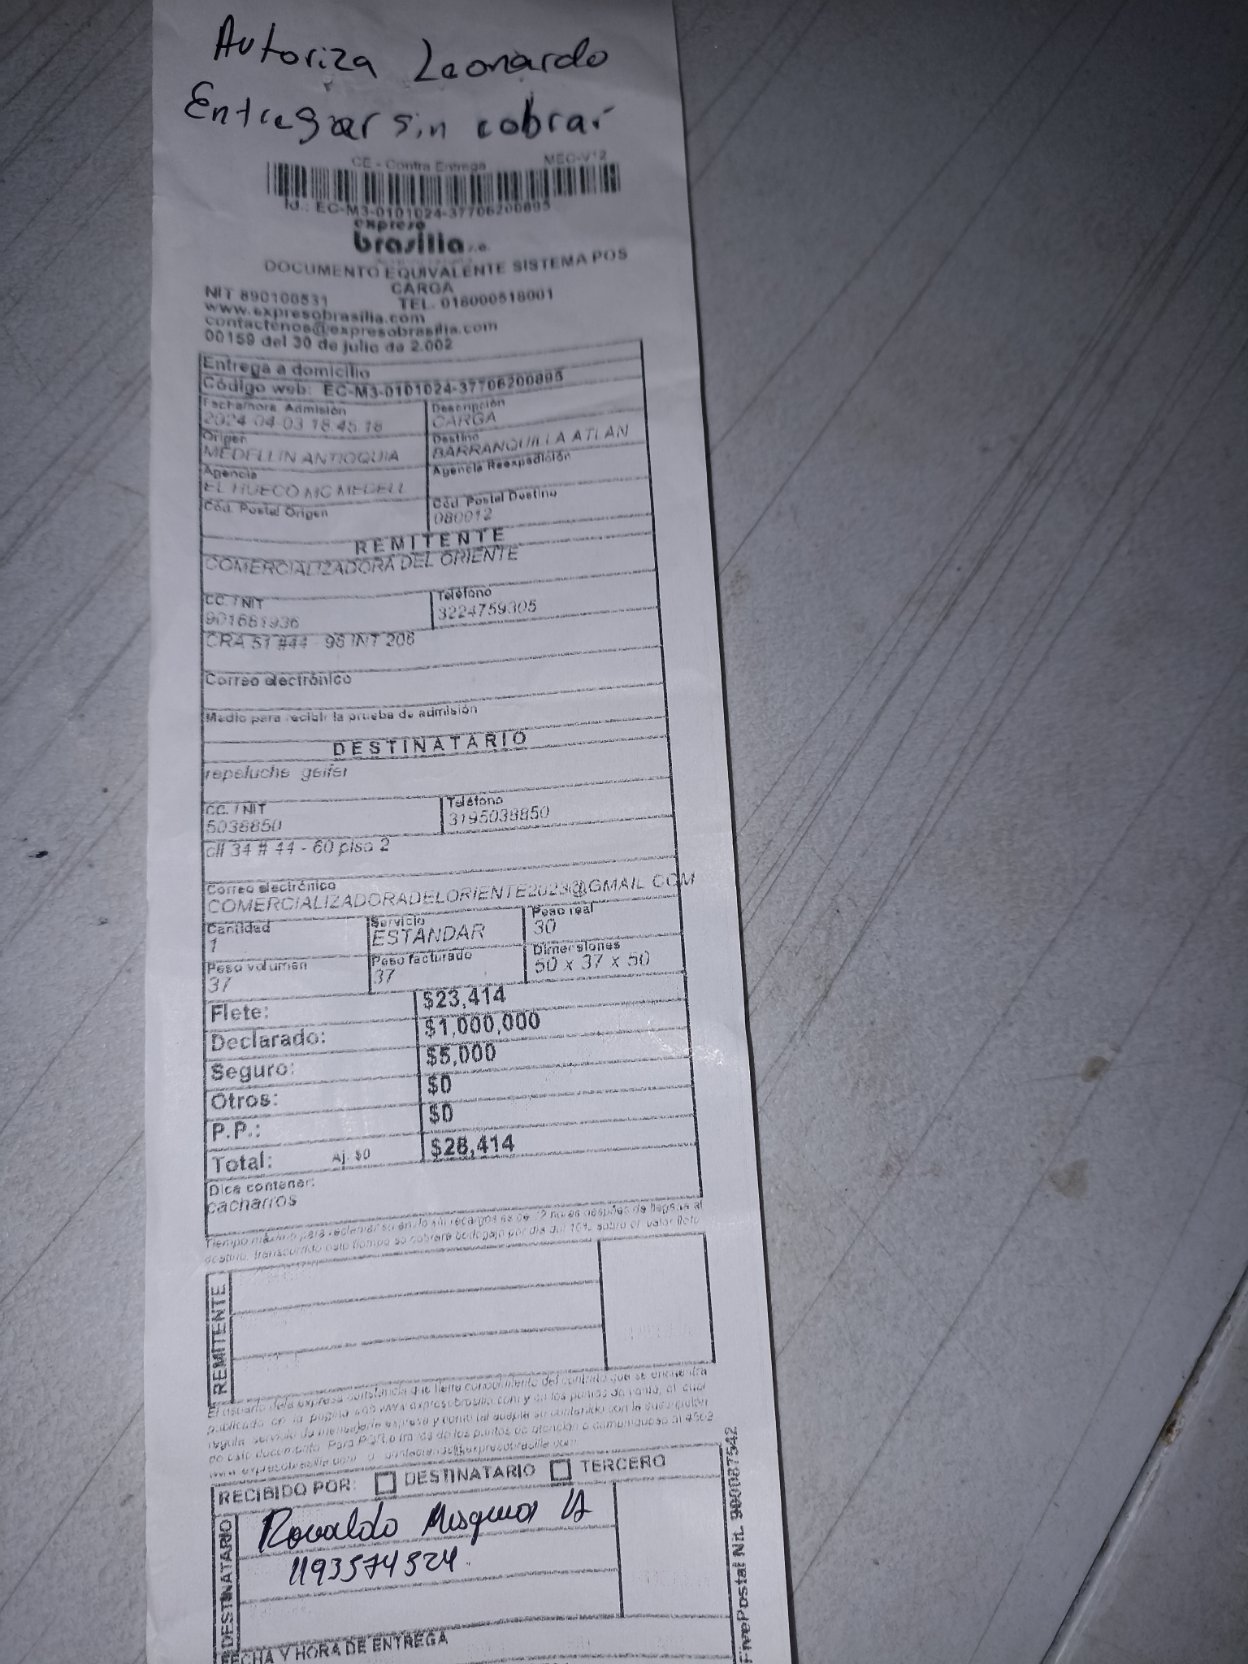 Autoriza Leonardo
Entregar sin cobrar
CE - Contra Entrega MEC-V12
Id.: EC-M3-0101024-37706200895
expreso
brasilia s.a.
DOCUMENTO EQUIVALENTE SISTEMA POS
CARGA
NIT 890100531 TEL. 018000518001
www.expresobrasilia.com
contactenos@expresobrasilia.com
00159 del 30 de julio de 2.002
Entrega a domicilio
Código web: EC-M3-0101024-37706200895
Fecha/hora Admisión Descripción
2024-04-03 18:45:18 CARGA
Origen Destino
MEDELLIN ANTIOQUIA BARRANQUILLA ATLAN
Agencia Agencia Reexpedición
EL HUECO MC MEDELL
Cód. Postal Origen Cód. Postal Destino
080012
REMITENTE
COMERCIALIZADORA DEL ORIENTE
CC. / NIT Teléfono
901681936 3224759305
CRA 51 #44 - 96 INT 206
Correo electrónico
Medio para recibir la prueba de admisión
DESTINATARIO
repeluche geifer
CC. / NIT Teléfono
5038850 3195038850
cll 34 # 44 - 60 piso 2
Correo electrónico
COMERCIALIZADORADELORIENTE2023@GMAIL.COM
Cantidad Servicio Peso real
1 ESTANDAR 30
Peso volumen Peso facturado Dimensiones
37 37 50 x 37 x 50
Flete: $23,414
Declarado: $1,000,000
Seguro: $5,000
Otros: $0
P.P.: $0
Total: Aj. $0 $28,414
Dice contener:
cacharros
Tiempo máximo para reclamar su envío sin recargos es de 72 horas después de llegada al
destino, transcurrido este tiempo se cobrará bodegaje por día del 10% sobre el valor flete
REMITENTE
El usuario deja expresa constancia que tiene conocimiento del contrato que se encuentra
publicado en la página web www.expresobrasilia.com y en los puntos de venta, el cual
regula servicio de mensajería expresa y
de este documento. Para PQR
www.expresobrasilia.com
RECIBIDO POR: DESTINATARIO TERCERO
DESTINATARIO
Ronaldo
1193574524
FECHA Y HORA DE ENTREGA
FivePostal Nit. 900087542